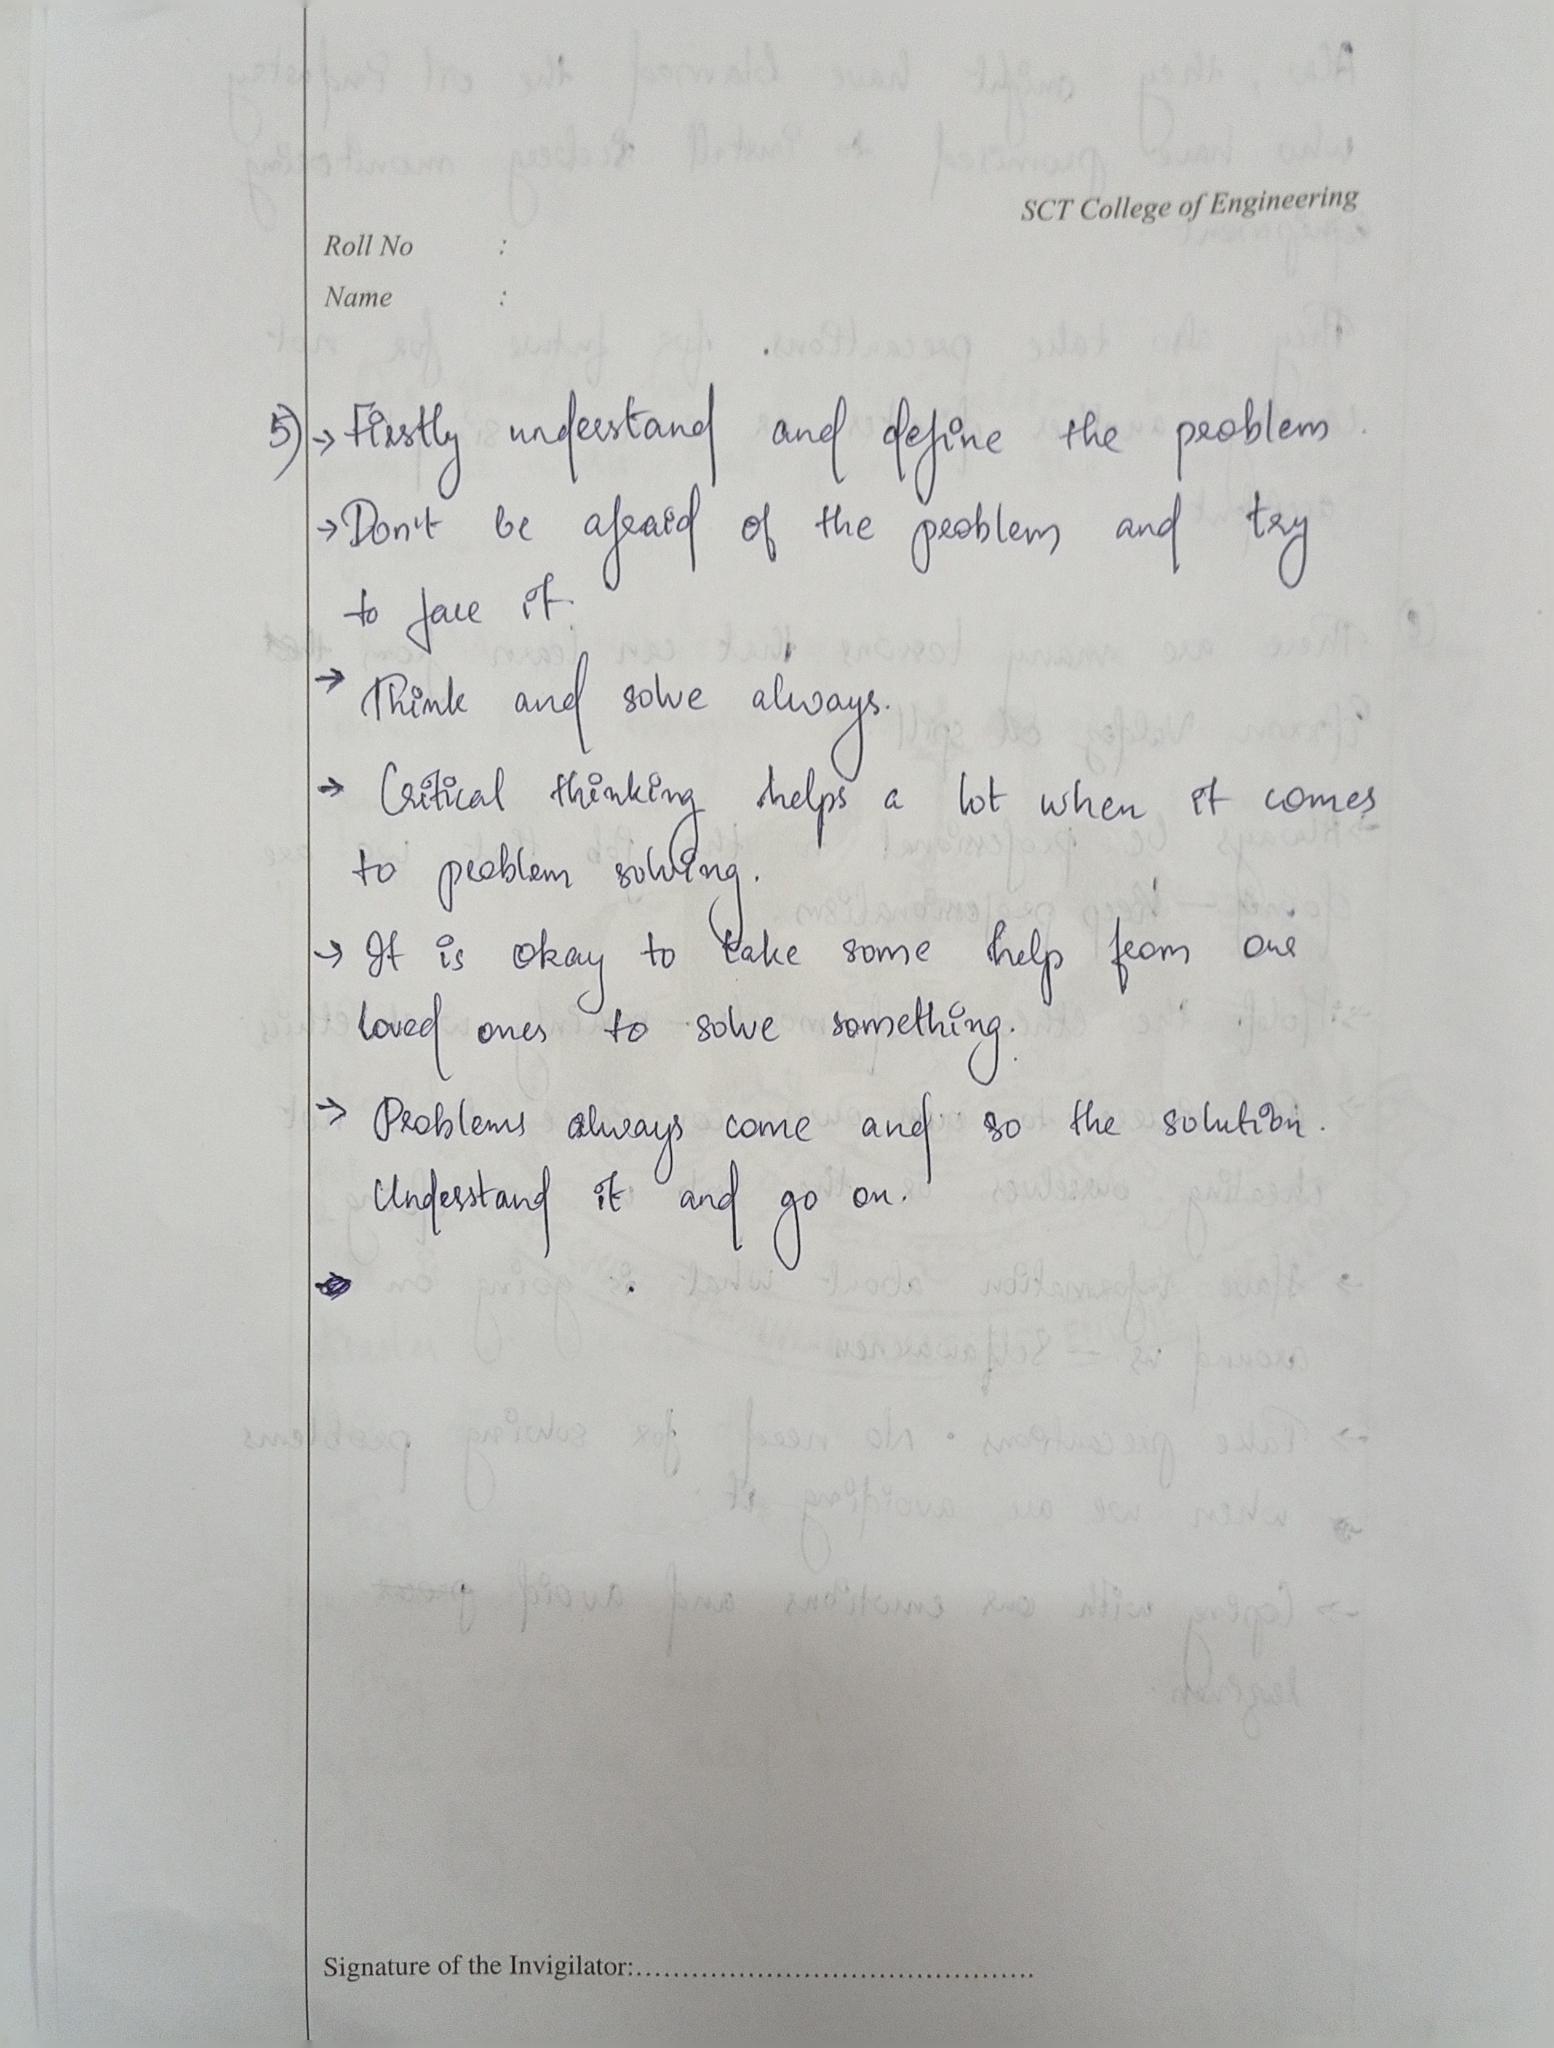 SCT College of Engineering
Roll No :
Name :
5) → Firstly understand and define the problem.
→ Don't be afraid of the problem and try
to face it.
→ Think and solve always.
→ Critical thinking helps a lot when it comes
to problem solving.
→ It is okay to take some help from our
loved ones to solve something.
→ Problems always come and so the solution.
Understand it and go on.
Signature of the Invigilator:............................................